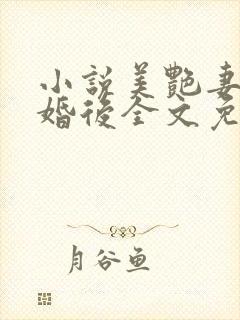 小說美艷妻
婚後全文免
月谷鱼